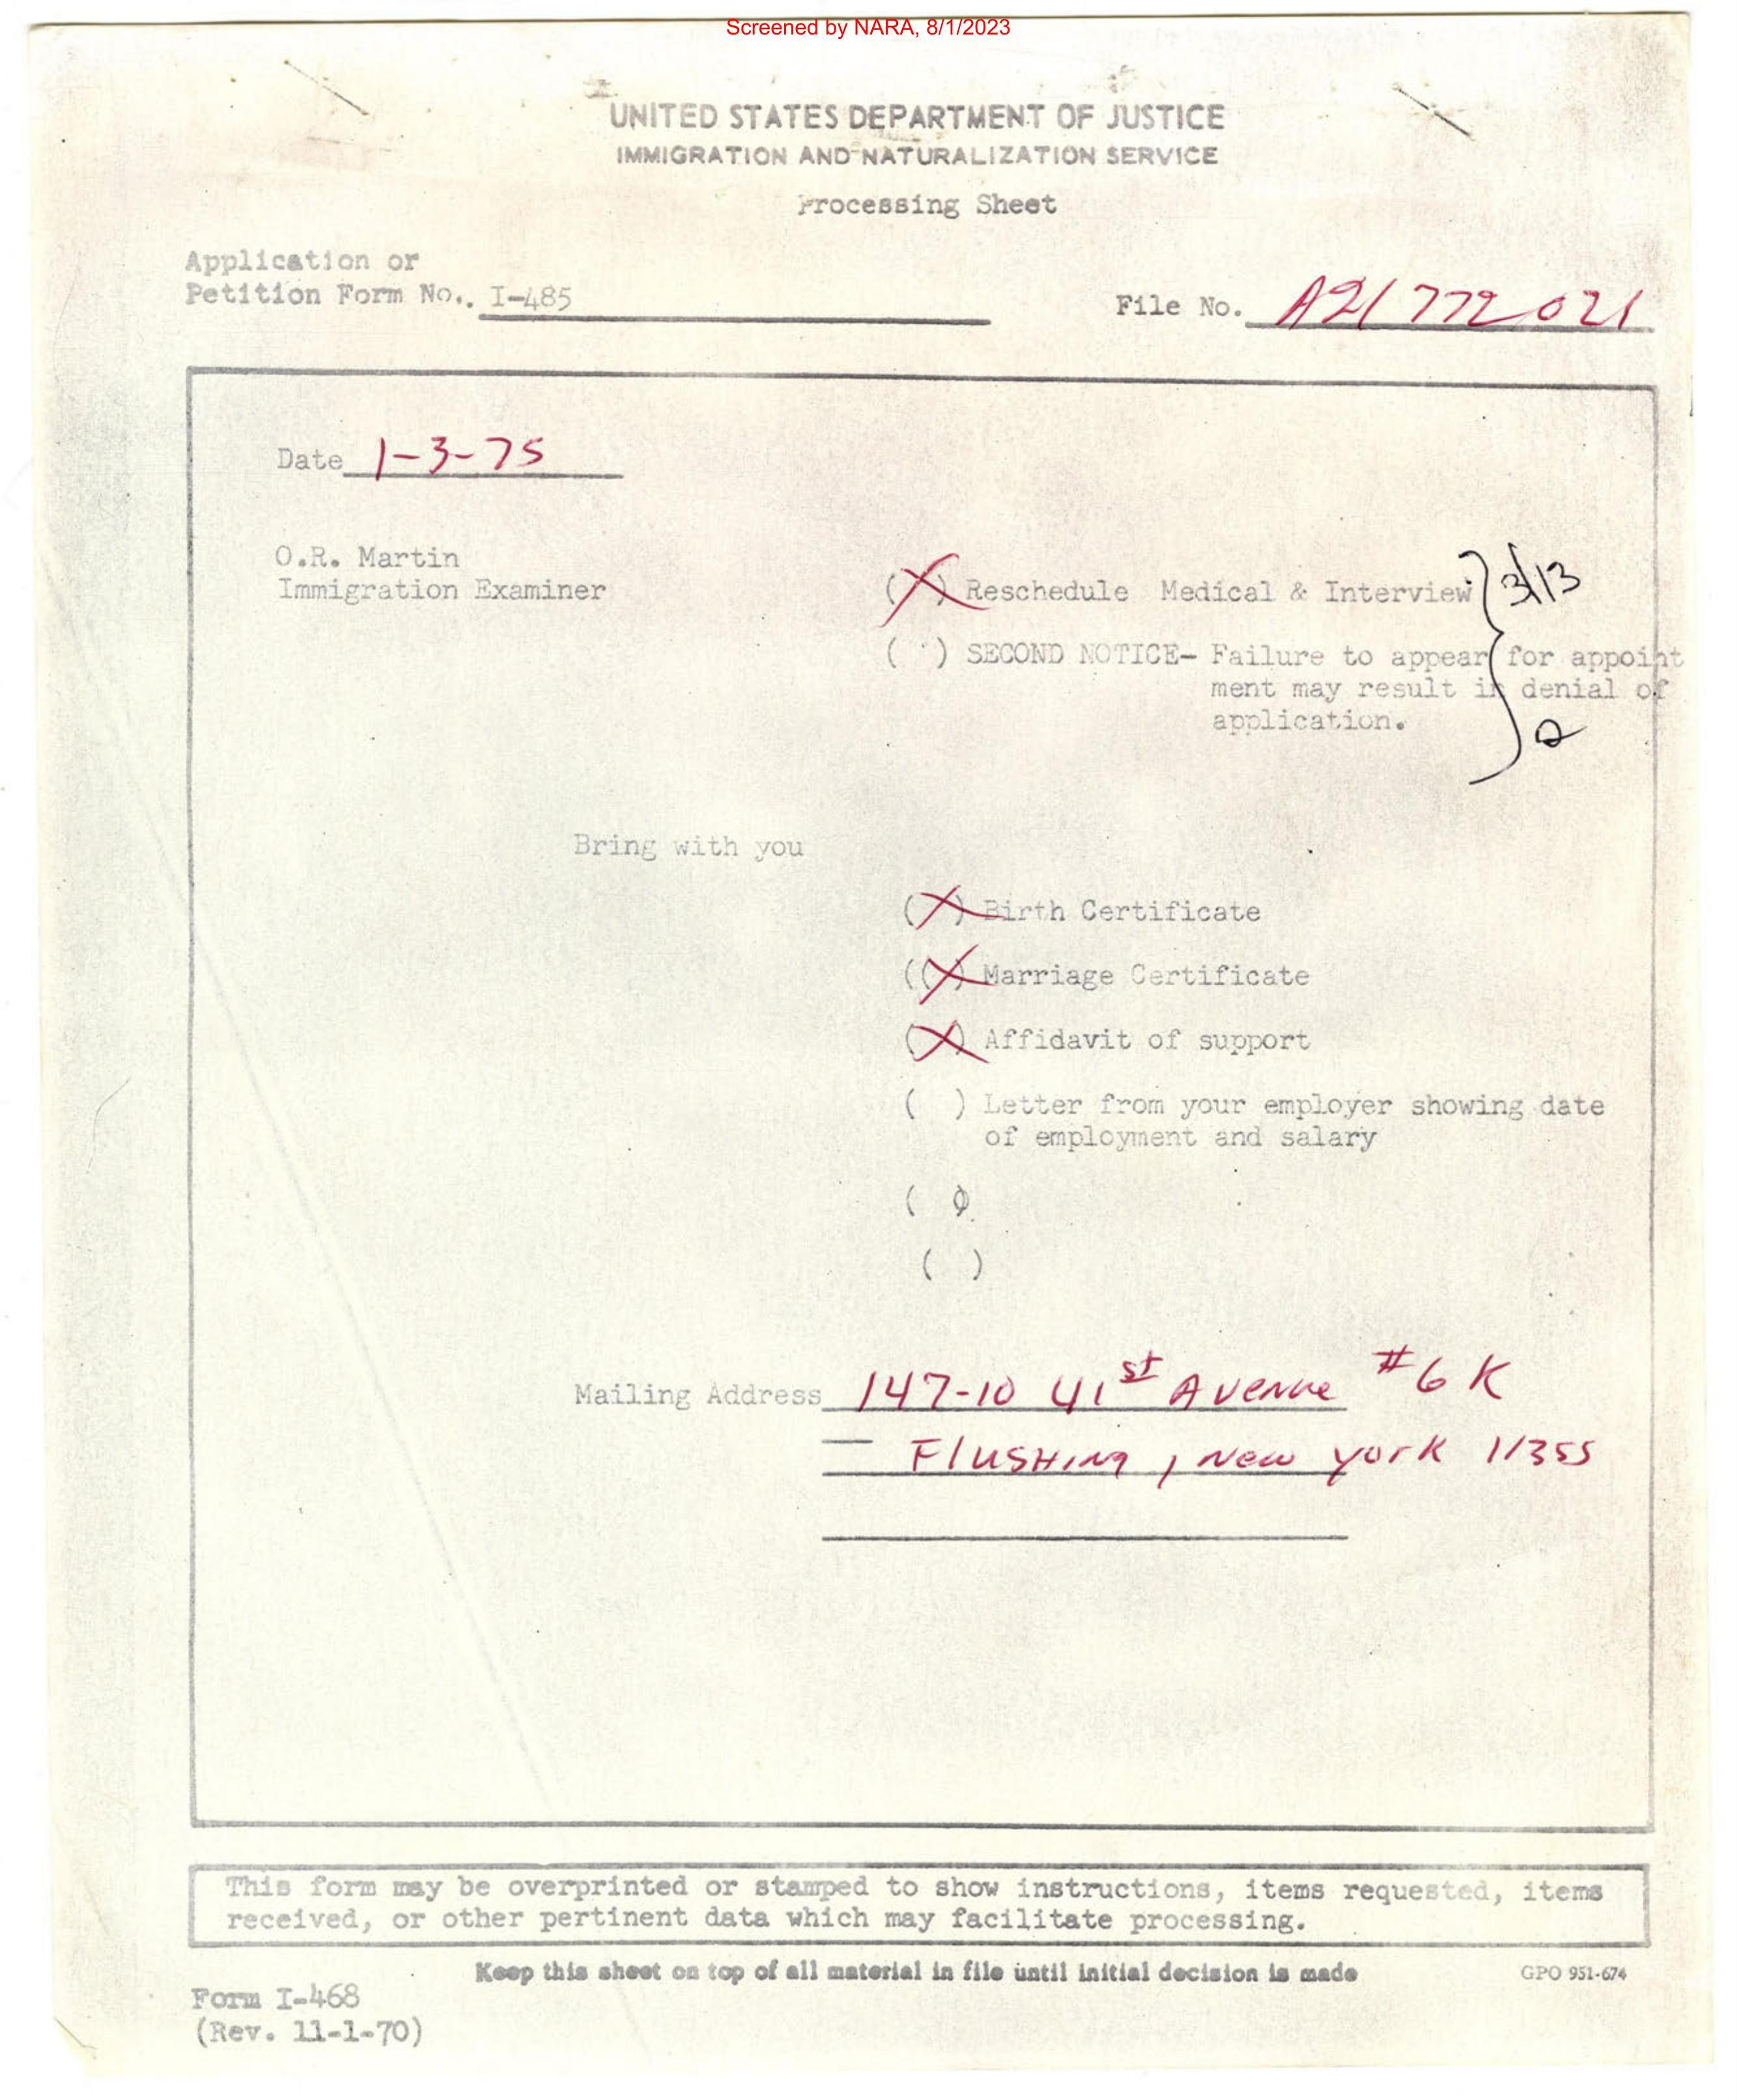 Screened by NARA, 8/1/2023
UNITED STATES DEPARTMENT OF JUSTICE
IMMIGRATION AND NATURALIZATION SERVICE
Processing Sheet
Application or
Petition Form No.. I-485
File No. A21 772 021
Date 1-3-75
O.R. Martin
Immigration Examiner
(X) Reschedule Medical & Interview } 3/13
( ) SECOND NOTICE- Failure to appear for appoint
ment may result in denial of
application.
Bring with you
(X) Birth Certificate
((X) Marriage Certificate
(X) Affidavit of support
( ) Letter from your employer showing date
of employment and salary
( )
( )
Mailing Address 147-10 41st Avenue #6K
Flushing, New York 11355
This form may be overprinted or stamped to show instructions, items requested, items
received, or other pertinent data which may facilitate processing.
Keep this sheet on top of all material in file until initial decision is made
GPO 951-674
Form I-468
(Rev. 11-1-70)